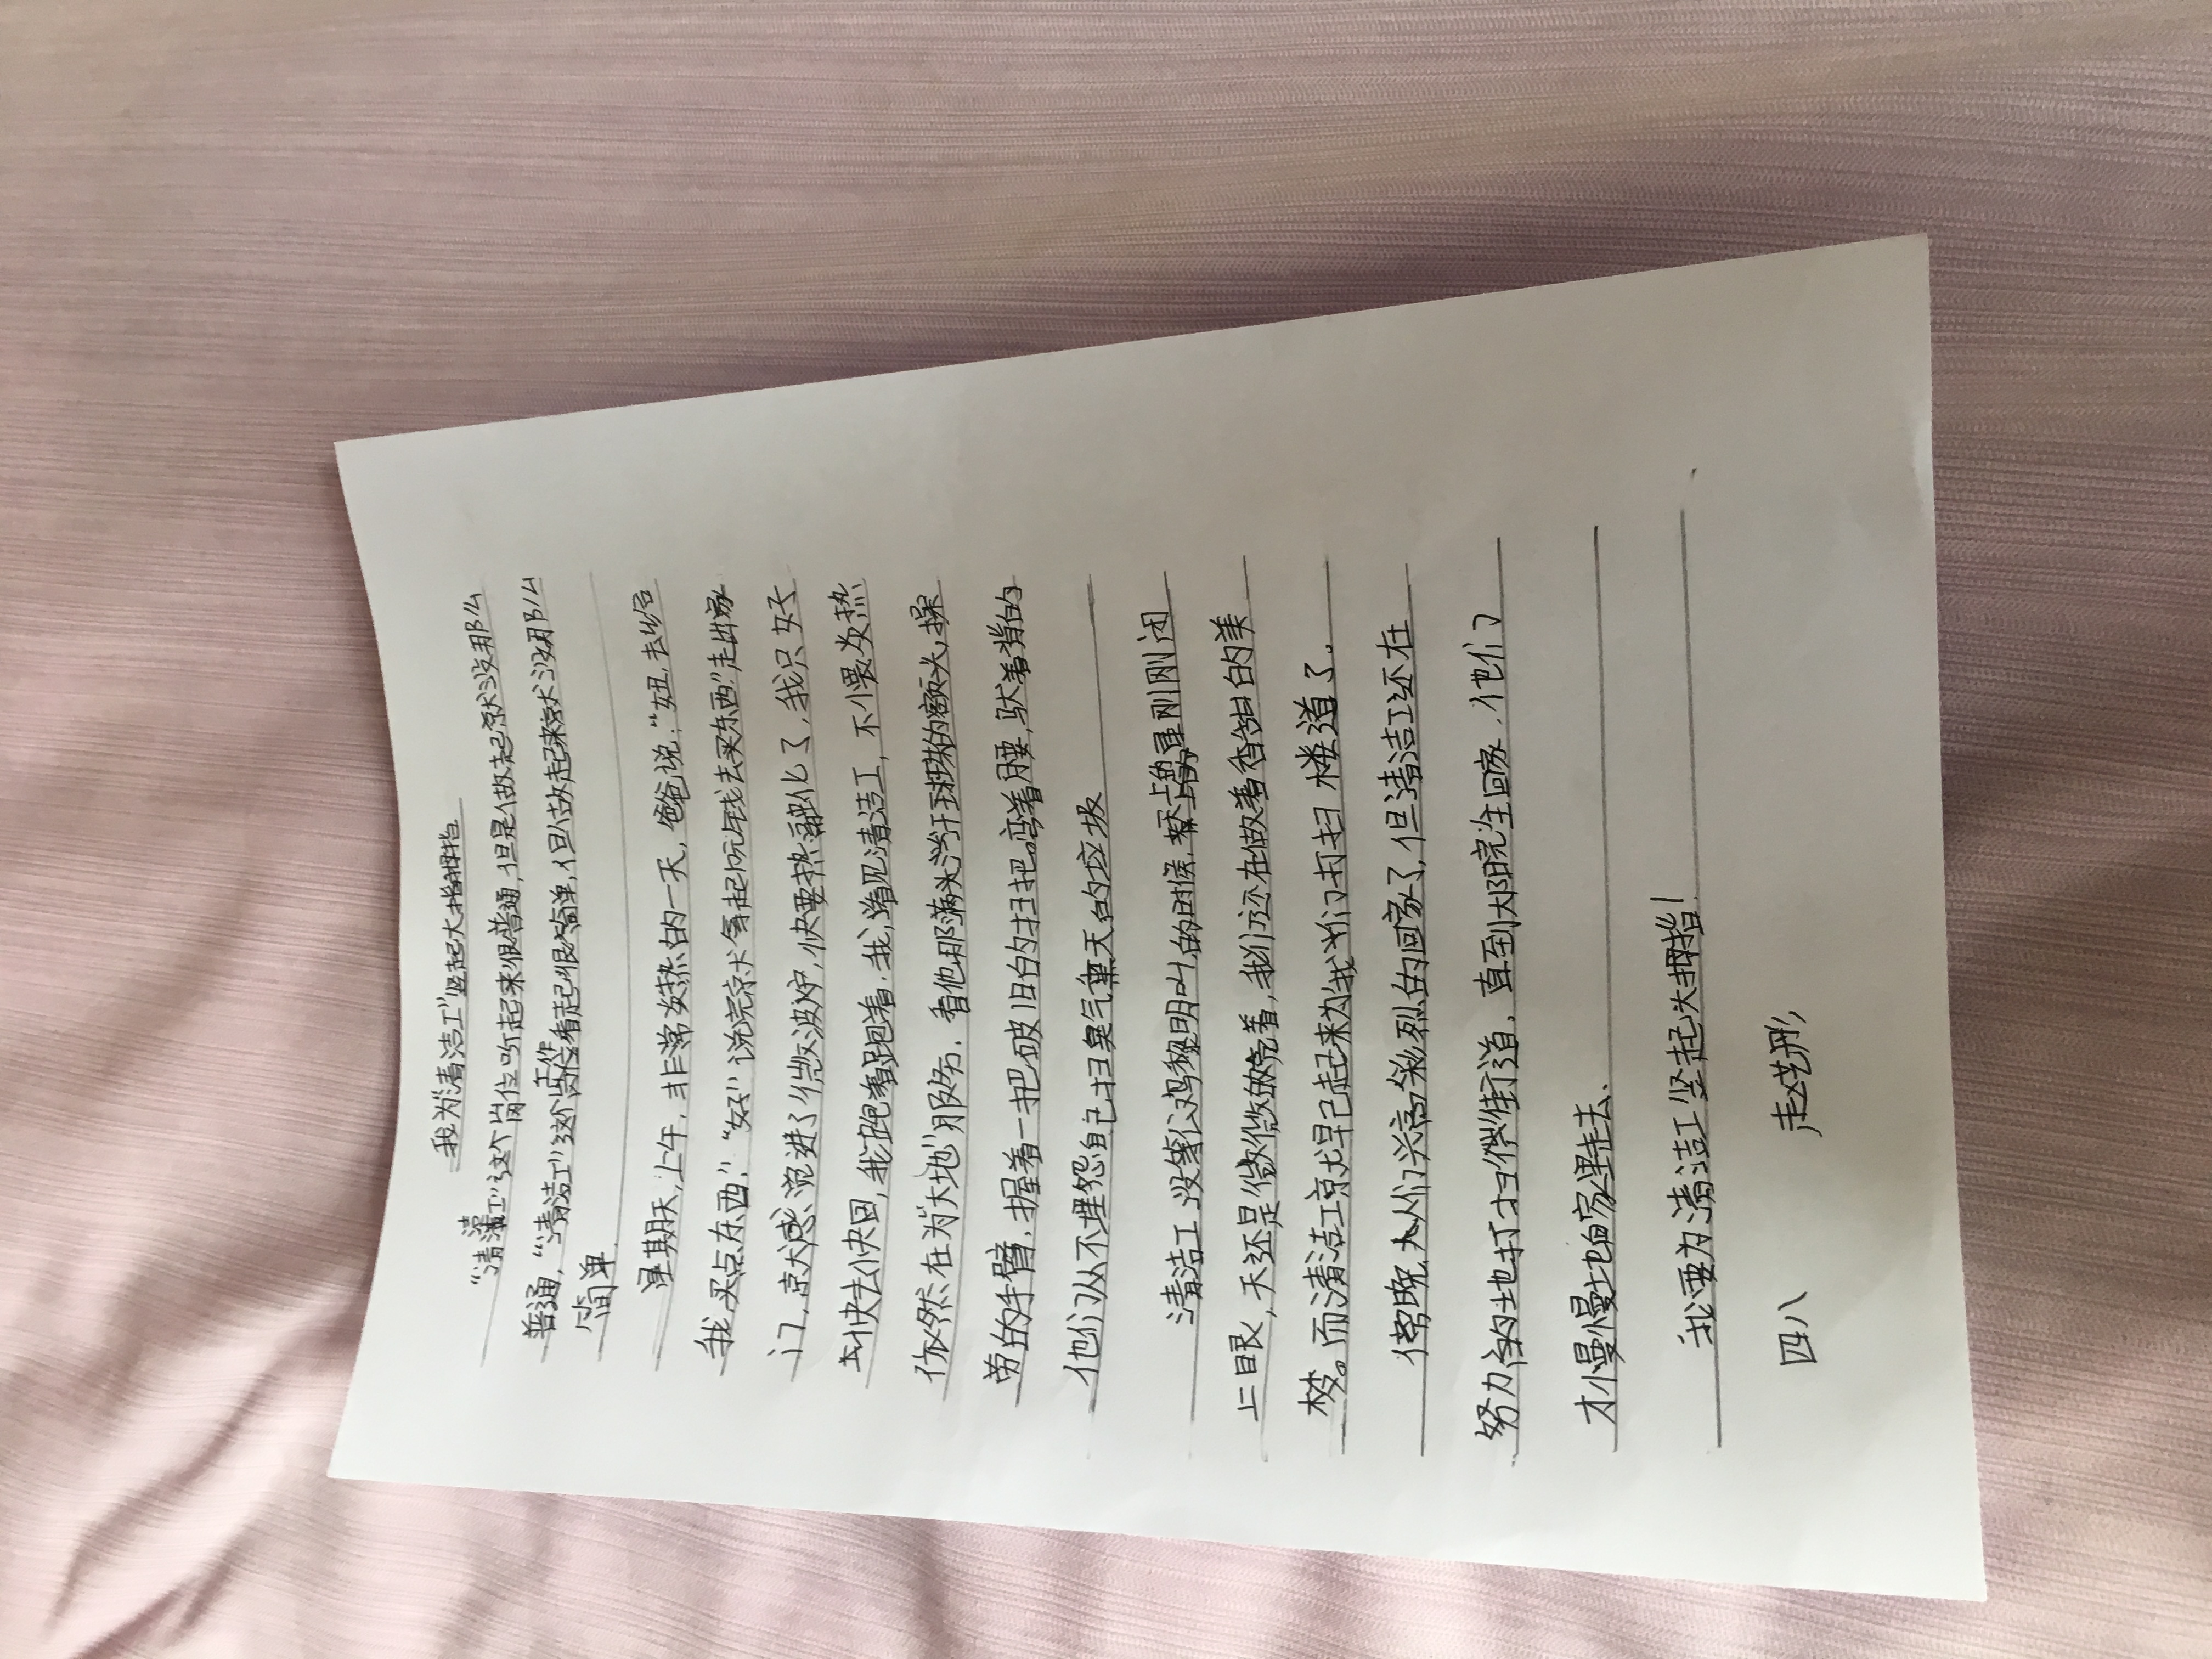 我为“清洁工”竖起大拇指
“清洁工”这个岗位听起来很普通，但是做起来就没那么
普通，“清洁工”这个工作看起很简单，但做起来就没那么
简单。
星期天，上午，非常炎热的一天，爸爸说：“妞，去给
我买点东西。”“好”说完就拿起玩钱去买东西”走出家
门，就感觉进了微波炉，快要热融化了，我只好
快去快回，我跑着跑着，我，看见清洁工，不惧炎热
依然在为“大地”服务，看他那满头汗珠的额头，操
劳的手臂，握着一把破旧的扫把弯着腰，驮着背的
他们从不埋怨自己扫臭气熏天的垃圾
清洁工没等公鸡黎明叫的时候，晚上的星刚刚闭
上眼，天还是微微的亮着，我们还在做着香甜的美
梦。而清洁工就早已起来为我们打扫楼道了。
傍晚，人们兴高彩烈的回家了，但清洁工还在
努力的地打扫街道，直到太阳先生回家，他们
才慢慢地向家里走去、
我要为清洁工竖起大拇指！
四八 赵艺彤